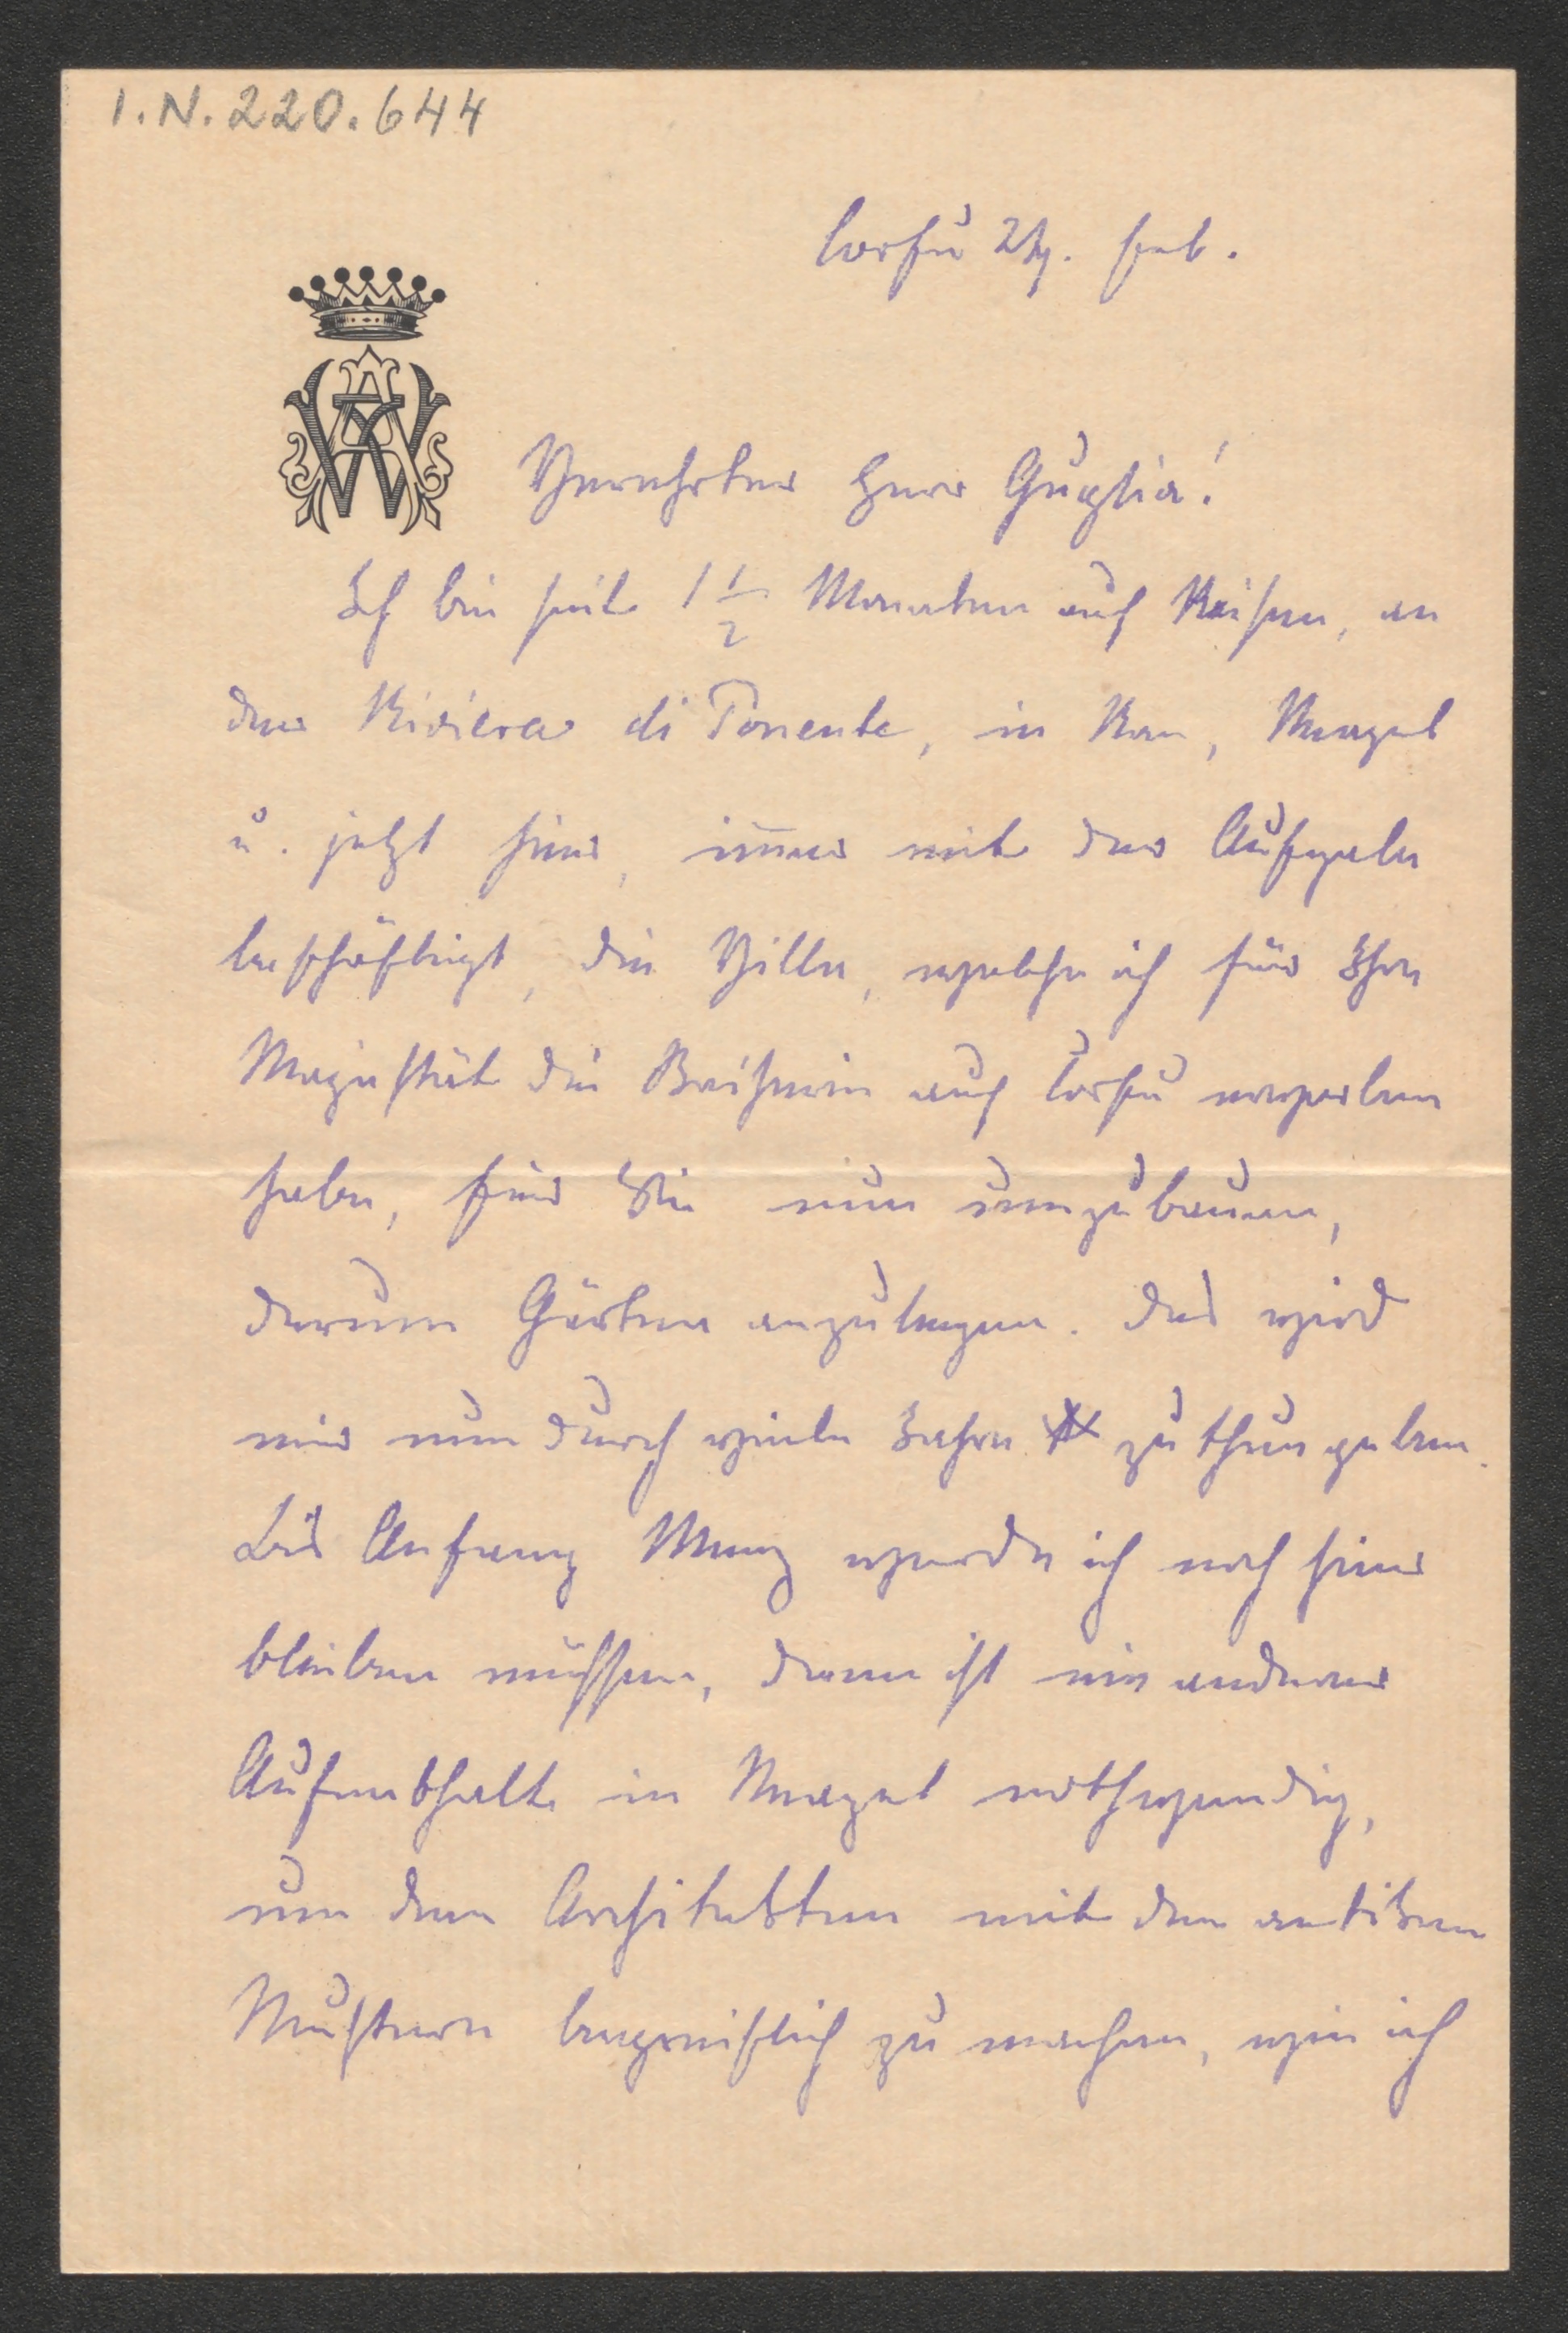 I.N. 220.644
Corfu 24. Feb.
Verehrter Herr Guglia!
Ich bin seit 1 1/2 Monaten auf Reisen, an
der Riviera di Ponente, in Rom, Neapel
u. jetzt hier, im̄er mit der Aufgabe
beschäftigt, die Villa, welche ich für Ihre
Majestät die Kaiserin auf Corfu erworben
habe, für Sie nun umzubauen,
darum Gärten anzulegen. Das wird
mir nun durch viele Jahre zu thun geben.
Bis Anfang März werde ich noch hier
bleiben müssen, dann ist ein anderer
Aufenthalt in Neapel nothwendig,
um den Architekten mit den antiken
Mustern begreiflich zu machen, wie ich